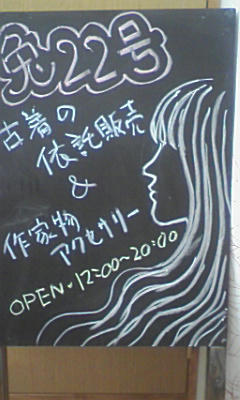 兎22号
古着の
依託販売
&
作家物
アクセサリー
OPEN・12:00~20:00